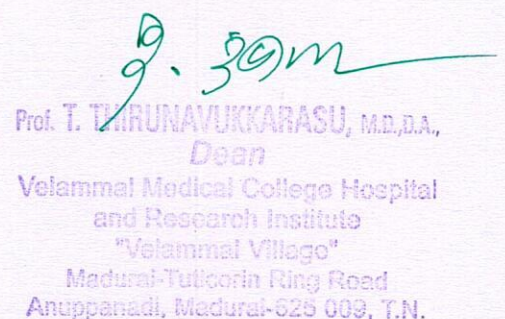 Prof. T. THIRUNAVUKKARASU, M.D.,D.A.,
Dean
Velammal Medical College Hospital
and Research Institute
"Velammal Village"
Madurai-Tuticorin Ring Road
Anuppanadi, Madurai-625 009, T.N.